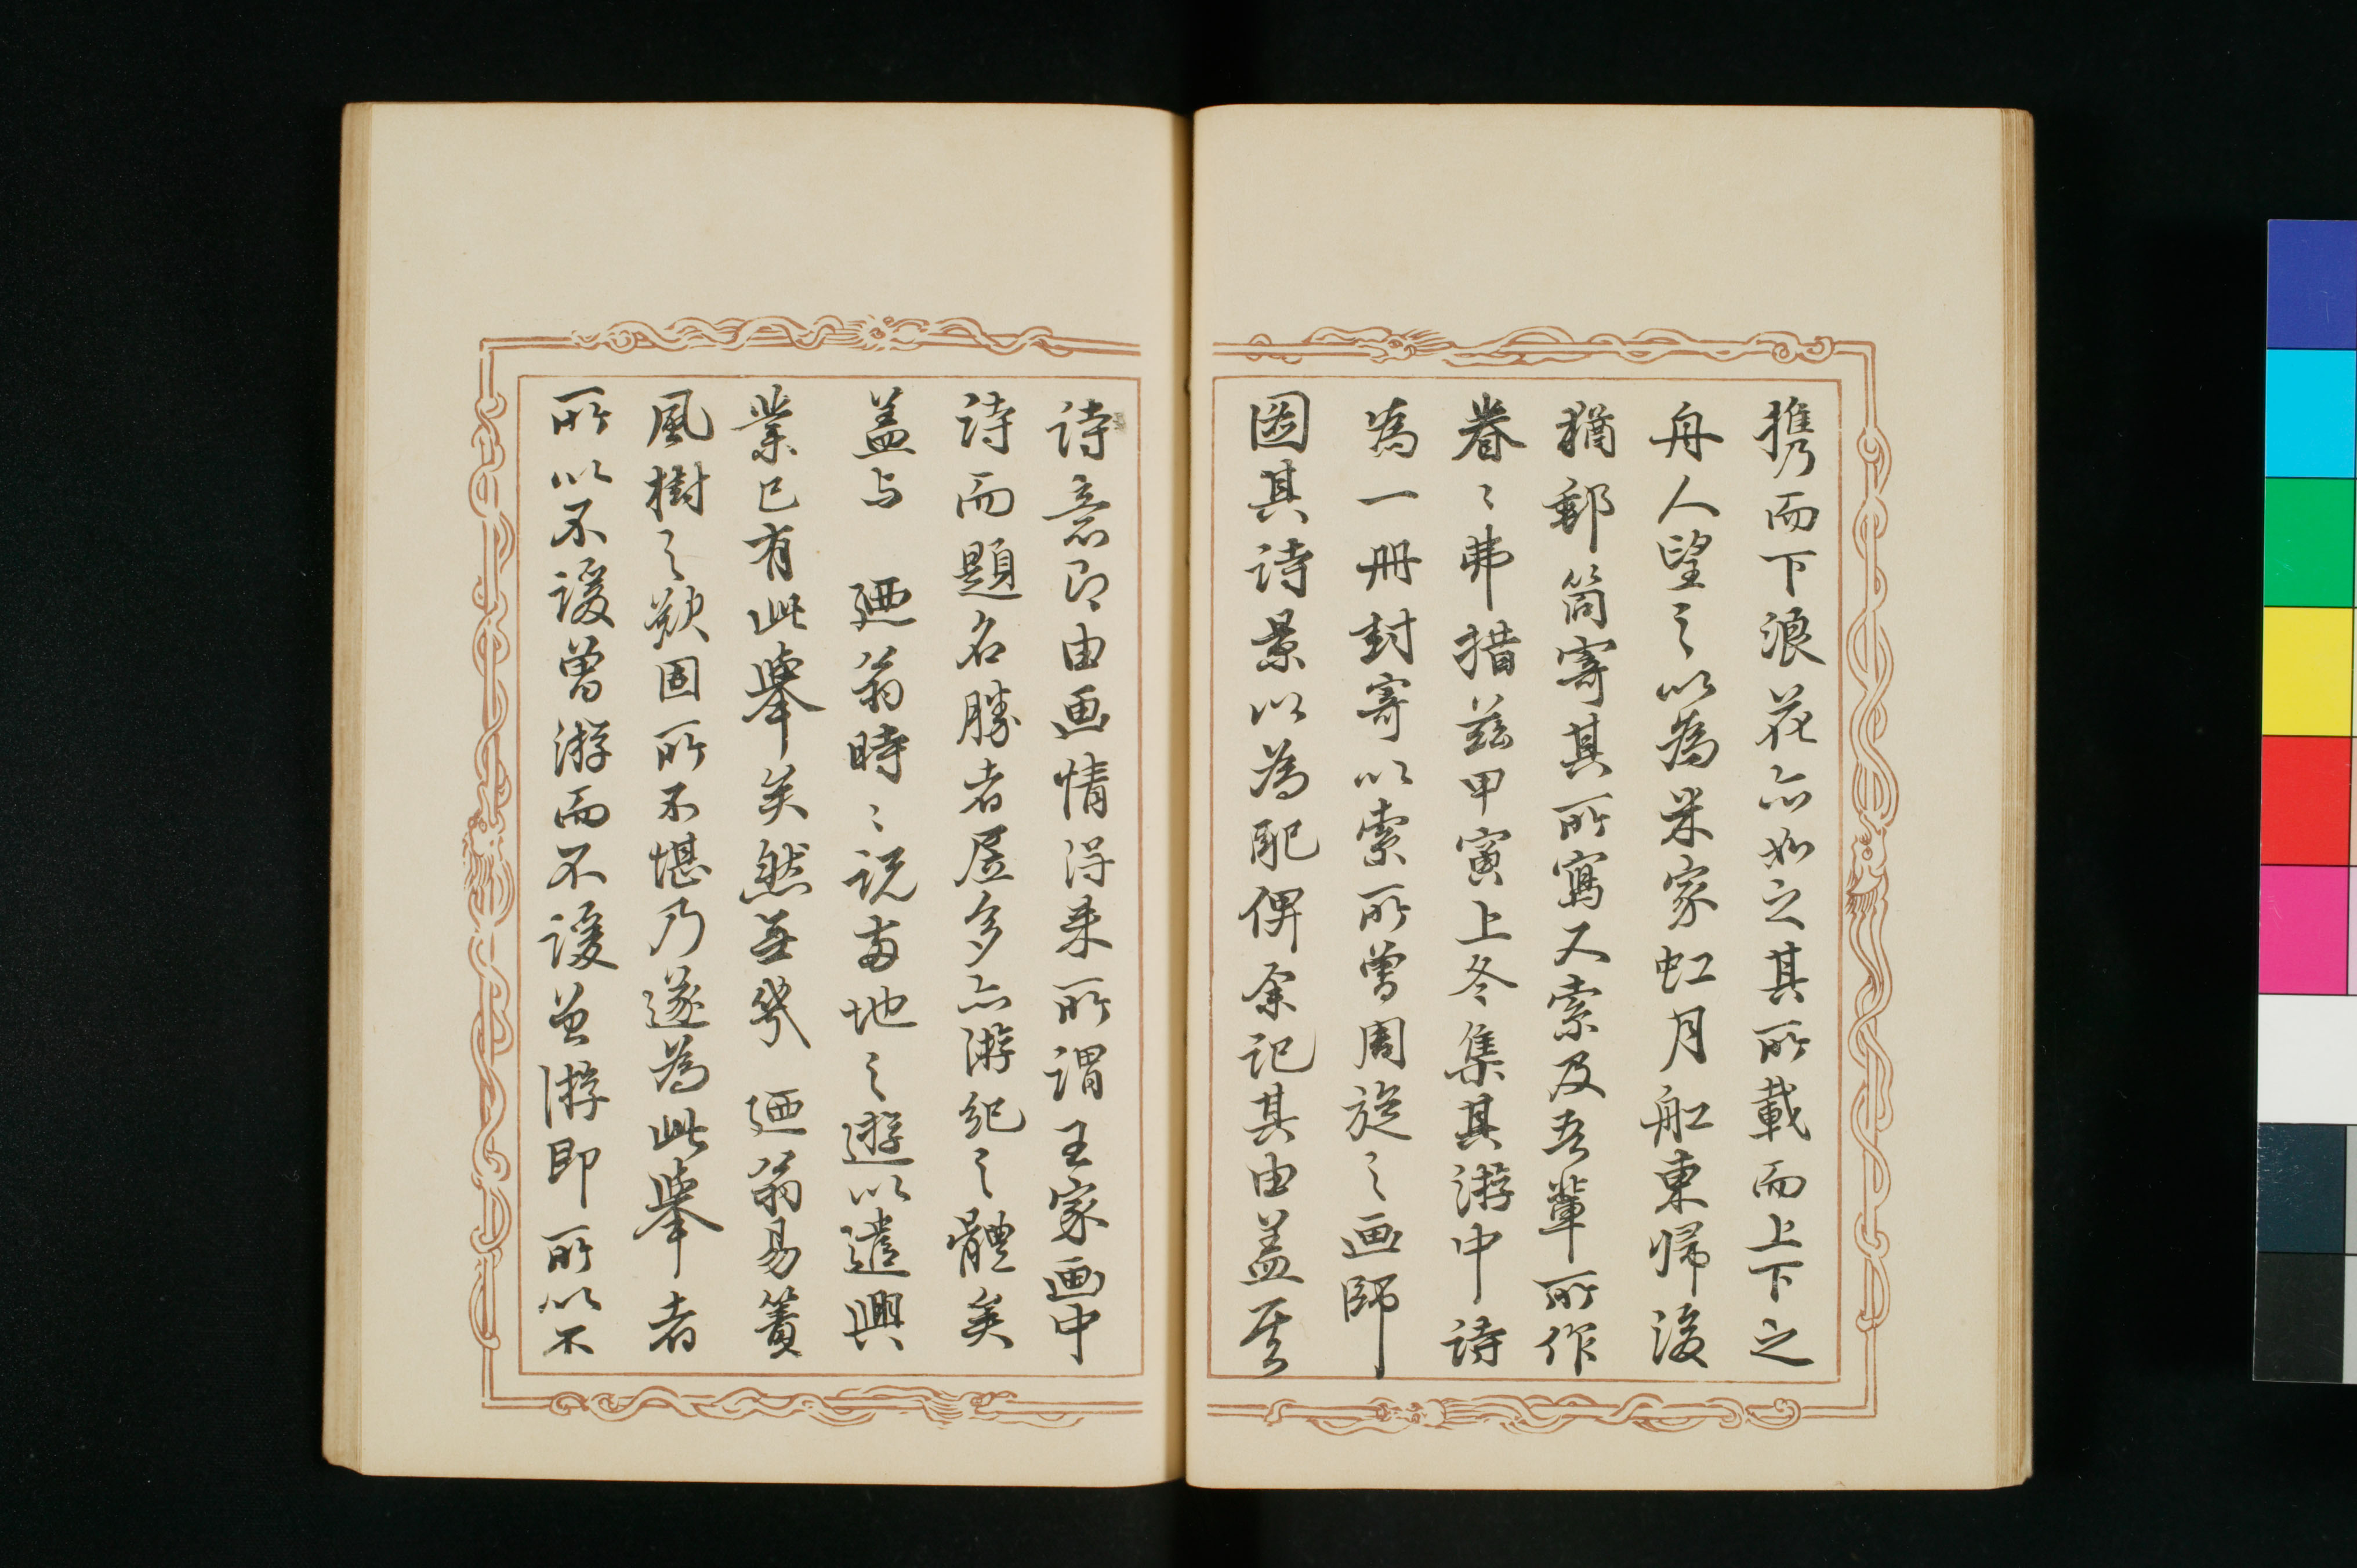 携而下浪花亦如之其所載而上下之
舟人望之以為米家虹月舡東帰後
猶郵筒寄其所寫又索及吾輩所作
眷〻弗措茲甲寅上冬集其游中詩
為一冊封寄以索所曽周旋之画師
図其詩景以為配俾余記其由盖
詩意即由画情得来所謂王家画中
詩而題名勝者居多亦游紀之體矣
盖与 廼翁時〻説両地之遊以遣興
業已有此擧矣然無幾 廼翁易簀
風樹之歎固所不堪乃遂為此擧者
所以不諼曽游而不諼曽游即所以不